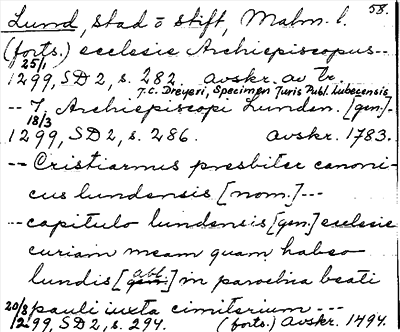 58.
Lund, stad o stift, Malm. l.
(forts.) ecclesie Archiepiscopus--
25/1
1299, SD 2, s. 282. avskr. av tr.
J.C. Dreyeri, Specimen Juris Publ. Lubecensis
-- J, Archiepiscopi Lunden. [gen.]-
18/3
1299, SD 2, s. 286. avskr. 1783.
-- Cristiarnus presbiter canoni-
cus lundensis [nom.]---
-- capitulo lundensis [gen.] ecclesie
curiam meam quam habeo
abl.
lundis [gen.] in parochia beati
pauli iuxta cimiterium ---
20/8
1299, SD 2, s. 294. (forts.) Avskr. 1494.